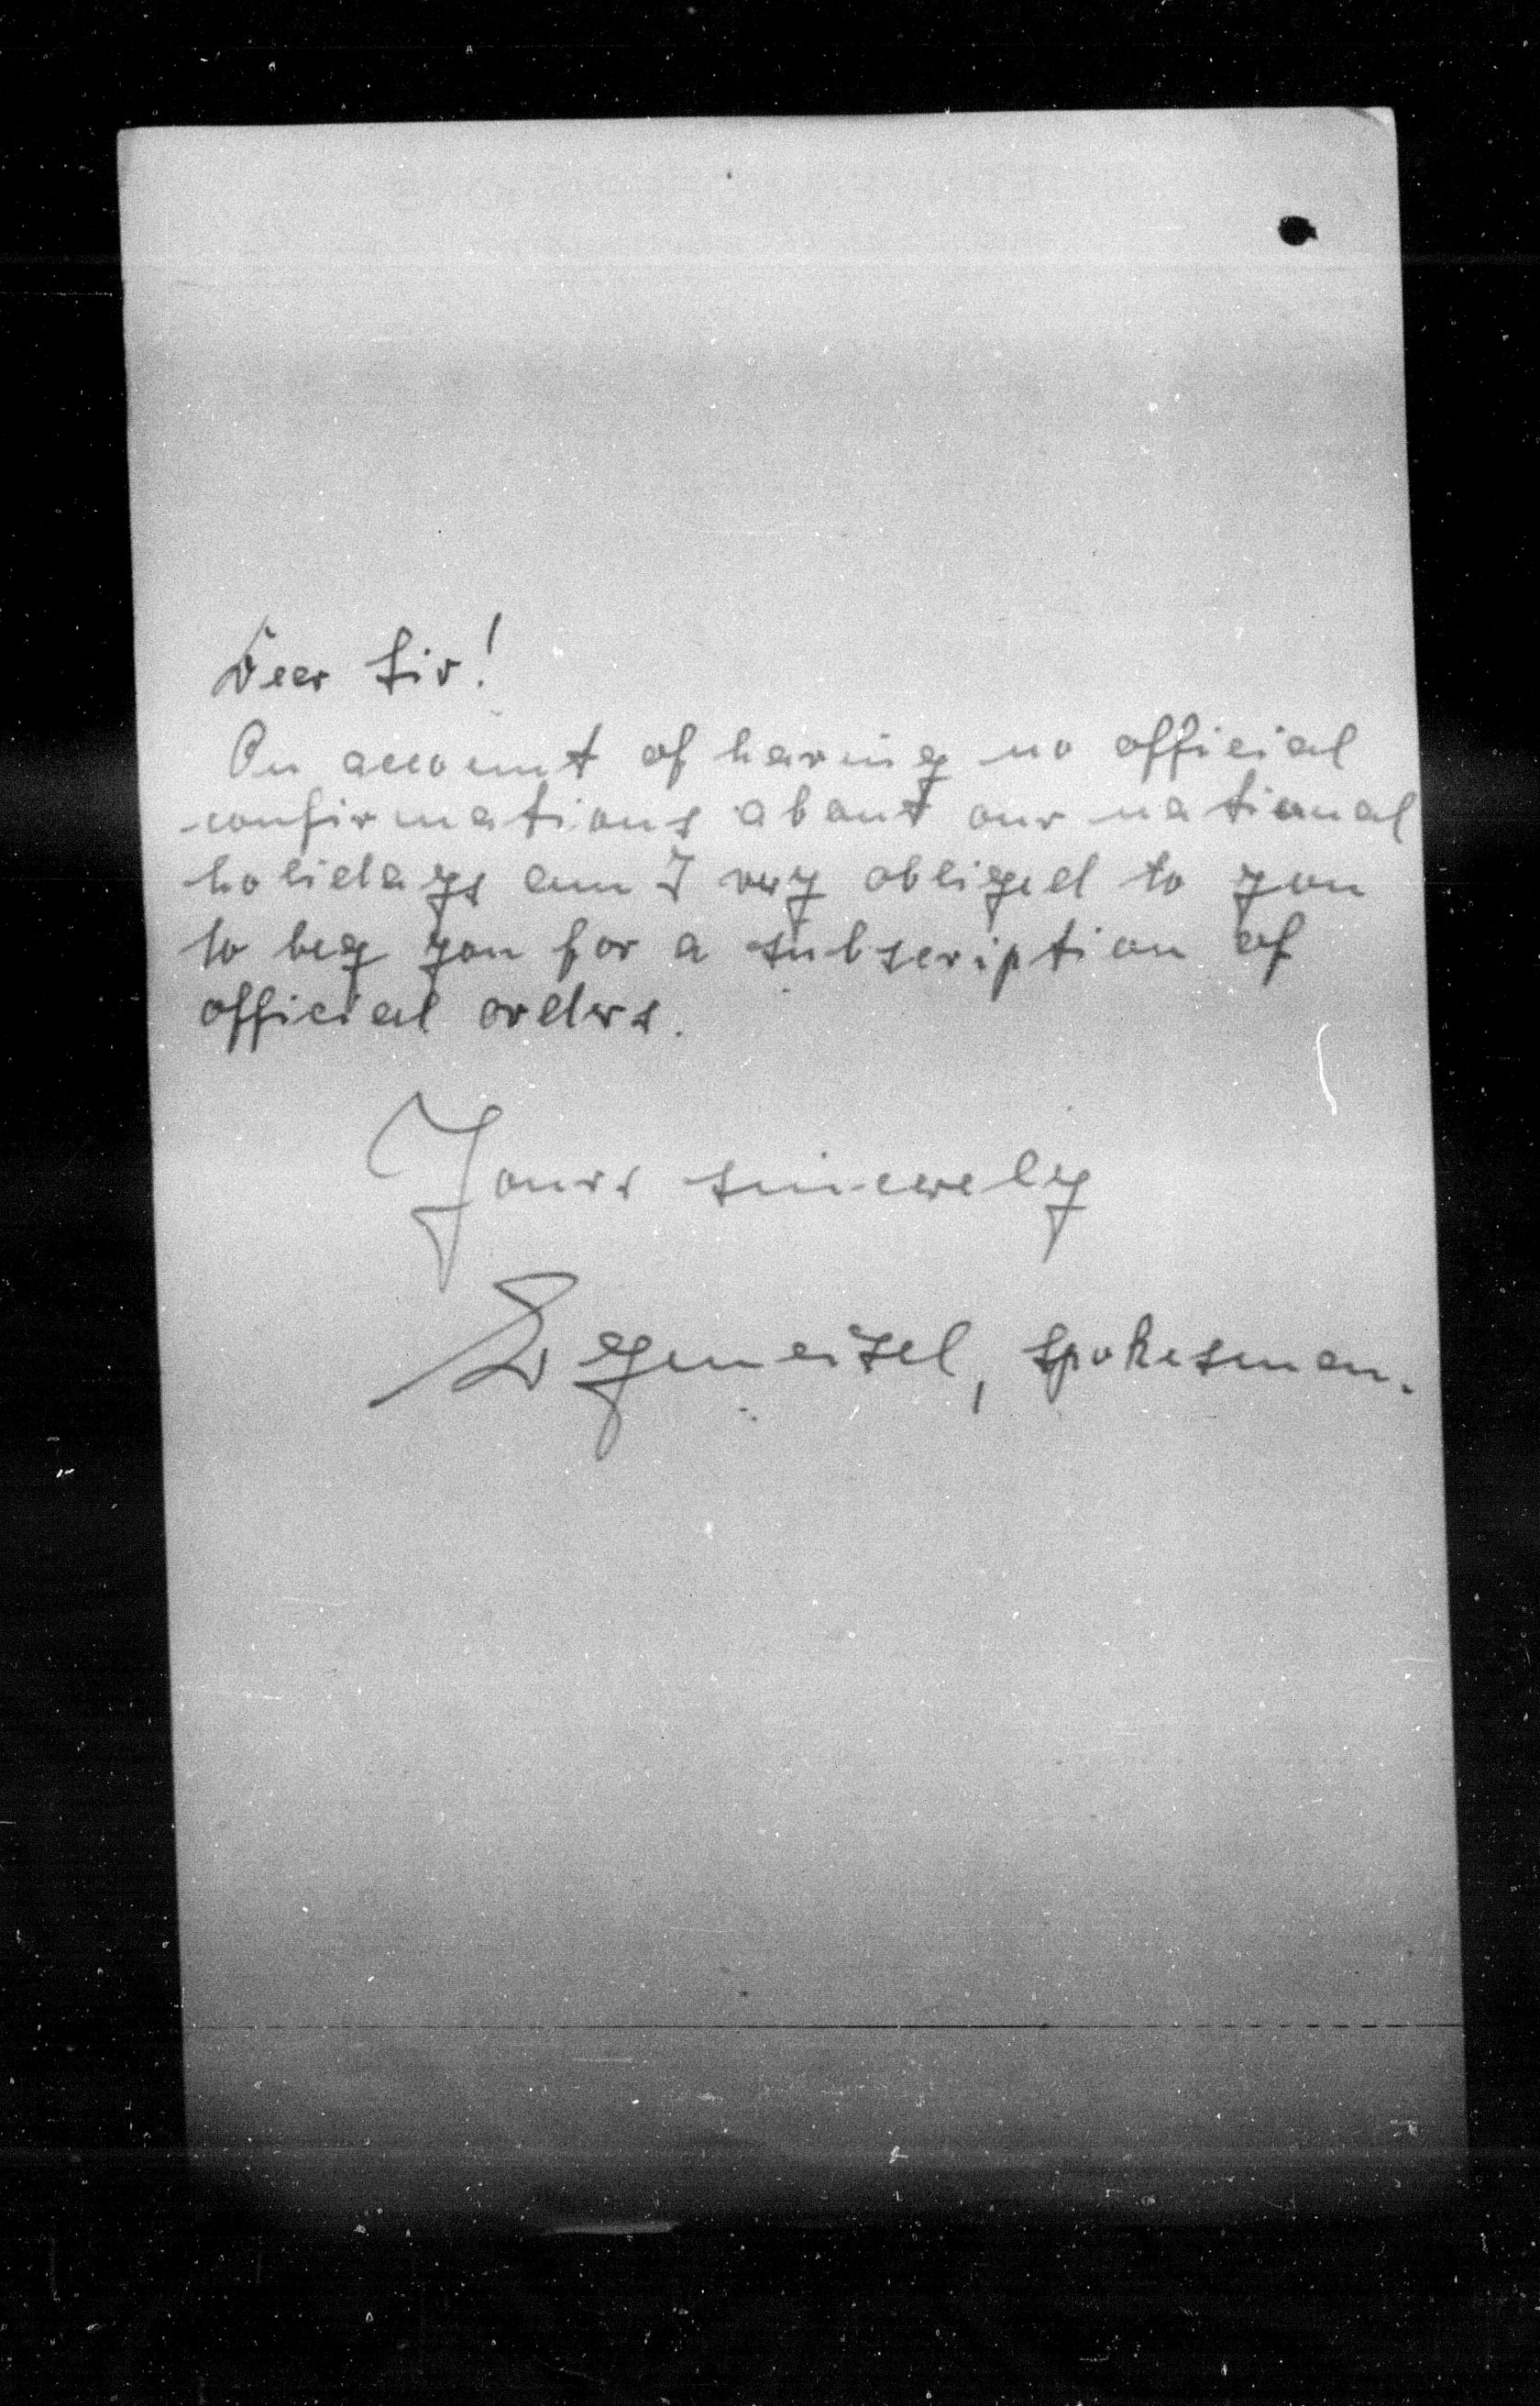 Dear Sir!
On account of having no official
confirmations about our national
holidays am I very obliged to you
to beg you for a subscription of
official orders.
Yours sincerely
spokesman.